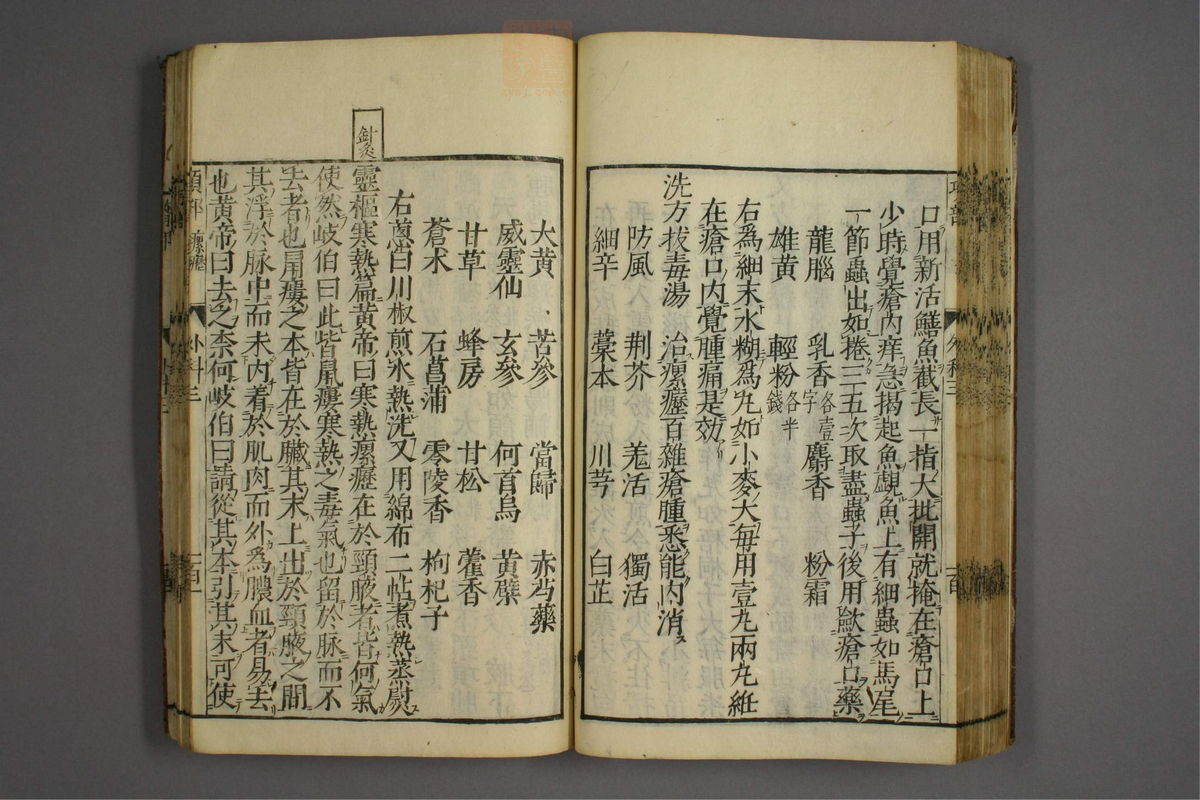 口用新活鱔魚截長一指大批開就掩在瘡口上
少時覺瘡內痒急揭起魚覷魚上有細蟲如馬尾
一節蟲出如捲三五次取盡蟲子後用歛瘡口藥
龍腦 乳香各壹字 麝香 粉霜
雄黃 輕粉各半錢
右為細末水糊為丸如小麥大每用壹丸兩丸絍
在瘡口內覺腫痛是效
洗方拔毒湯 治瘰癧百雜瘡腫悉能內消
防風 荆芥 羗活 獨活
細辛 藁本 川芎 白芷
大黃 苦參 當歸 赤芍藥
威靈仙 玄參 何首烏 黃檗
甘草 蜂房 甘松 藿香
蒼朮 石菖蒲 零陵香 枸杞子
右䓗白川椒煎水熱洗又用綿布二帖煮熱蒸熨
鍼灸
靈樞寒熱篇黃帝曰寒熱瘰癧在於頸腋者皆何氣
使然岐伯曰此皆鼠瘻寒熱之毒氣也留於脉而不
去者也鼠瘻之本皆在於臟其末上出於頸腋之間
其浮於脉中而未內着於肌肉而外為膿血者易去
也黃帝曰去之柰何岐伯曰請從其本引其末可使
外科三